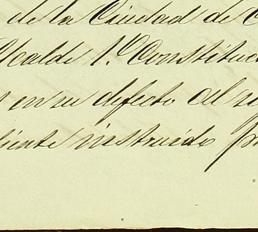 de la Ciudad de
Alcalde 1.º Constituc
en su defecto al
diente instruido p